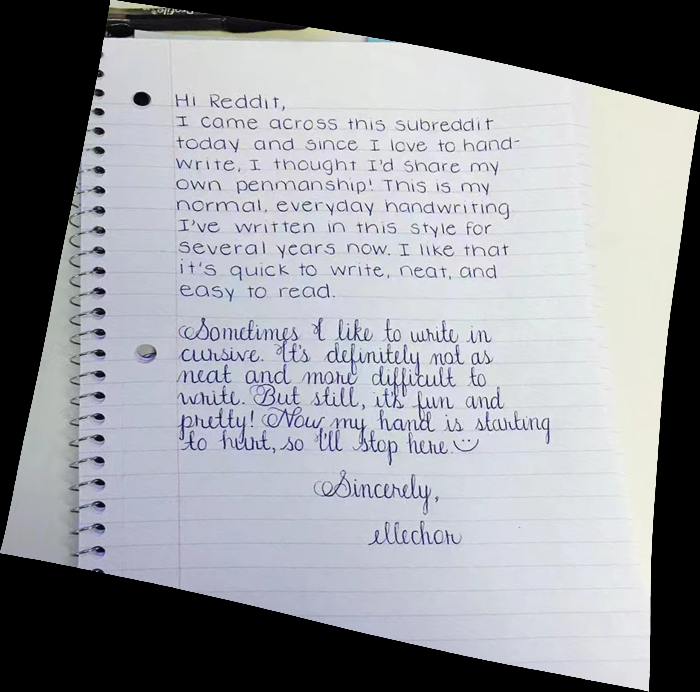 Hi Reddit,
I came across this subreddit
today and since I love to hand-
write, I thought I'd share my
own penmanship! This is my
normal, everyday handwriting
I've written in this style for
several years now. I like that
it's quick to write, neat, and
easy to read.
Sometimes I like to write in
cursive. It's definitely not as
neat and more difficult to
write. But still, it's fun and
pretty! Now my hand is starting
to hurt, so I'll stop here.
Sincerely,
ellechon